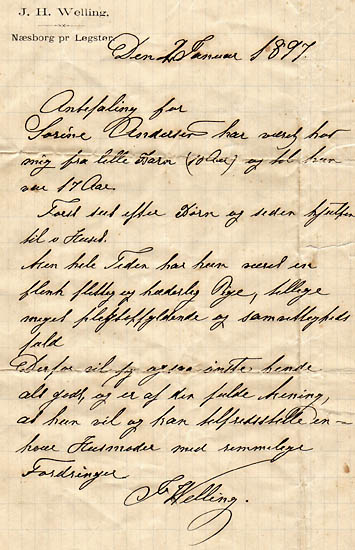 J. H. Welling,
Næsborg pr Løgstør.
Den 2 Januar 1897.
Anbefaling for
Sørine Andersen har været hos
mig fra lille Barn (10 Aar) og til hun
var 17 Aar.
Først set efter Børn og siden hjulpen
til i Huset.
Den hele Tiden har hun været en
flink flittig og hæderlig Pige, tillige
meget pligtopfyldende og samvittigheds
fuld
Derfor vil jeg ogsaa ønske hende
alt godt, og er af den fulde Mening,
at hun vil og kan tilfredsstille en-
hver Husmoder med rimmelige
Fordringer.
J Welling.